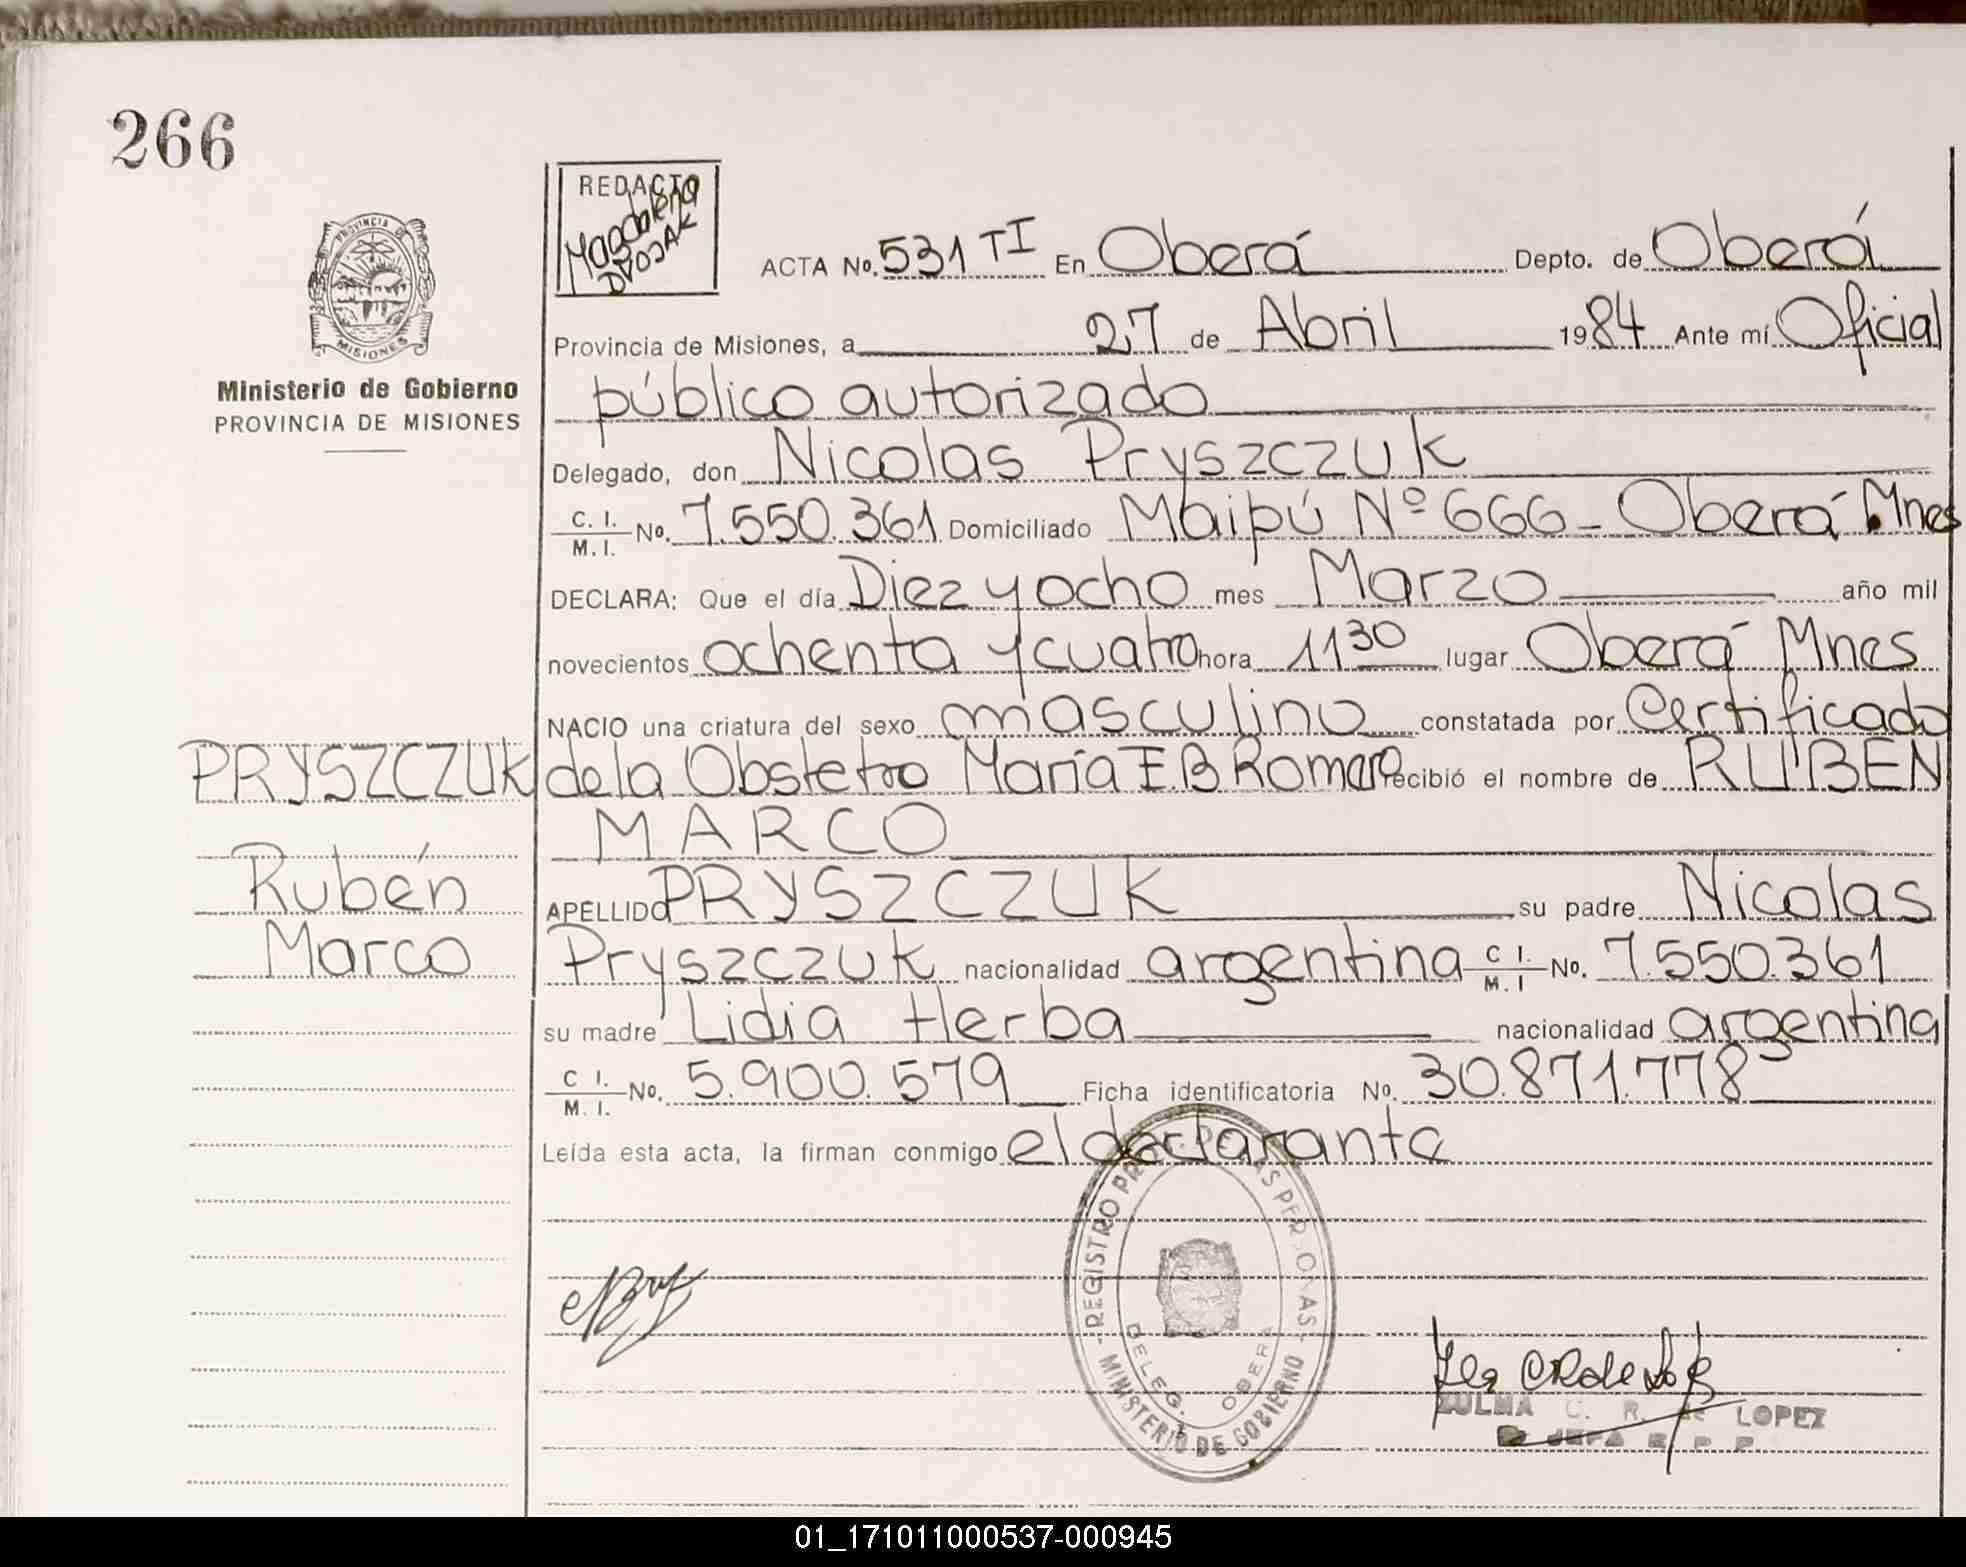 266
REDACTO
Magdalena
DVOJAK
PROVINCIA DE
MISIONES
Ministerio de Gobierno
PROVINCIA DE MISIONES
ACTA No. 531 TI En Oberá Depto. de Oberá
Provincia de Misiones, a 27 de Abril 1984 Ante mí Oficial
público autorizado
Delegado, don Nicolas Pryszczuk
C. I. / M. I. No. 7.550.361 Domiciliado Maipú Nº 666 - Oberá Mnes
DECLARA: Que el día Diez y ocho mes Marzo año mil
novecientos ochenta y cuatro hora 11 30 lugar Oberá Mnes
NACIO una criatura del sexo masculino constatada por Certificado
PRYSZCZUK
de la Obstetra María E.B Romero recibió el nombre de RUBEN
MARCO
Rubén
Marco
APELLIDO PRYSZCZUK su padre Nicolas
Pryszczuk nacionalidad argentina C I. / M. I No. 7.550.361
su madre Lidia Herba nacionalidad argentina
C I. / M. I. No. 5.900.579 Ficha identificatoria No. 30.871.778
Leída esta acta, la firman conmigo el declarante
- REGISTRO PROV. DE LAS PERSONAS -
MINISTERIO DE GOBIERNO
DELEG. OBERA
ZULMA C. R. de LOPEZ
JEFA R. P. P.
01_171011000537-000945